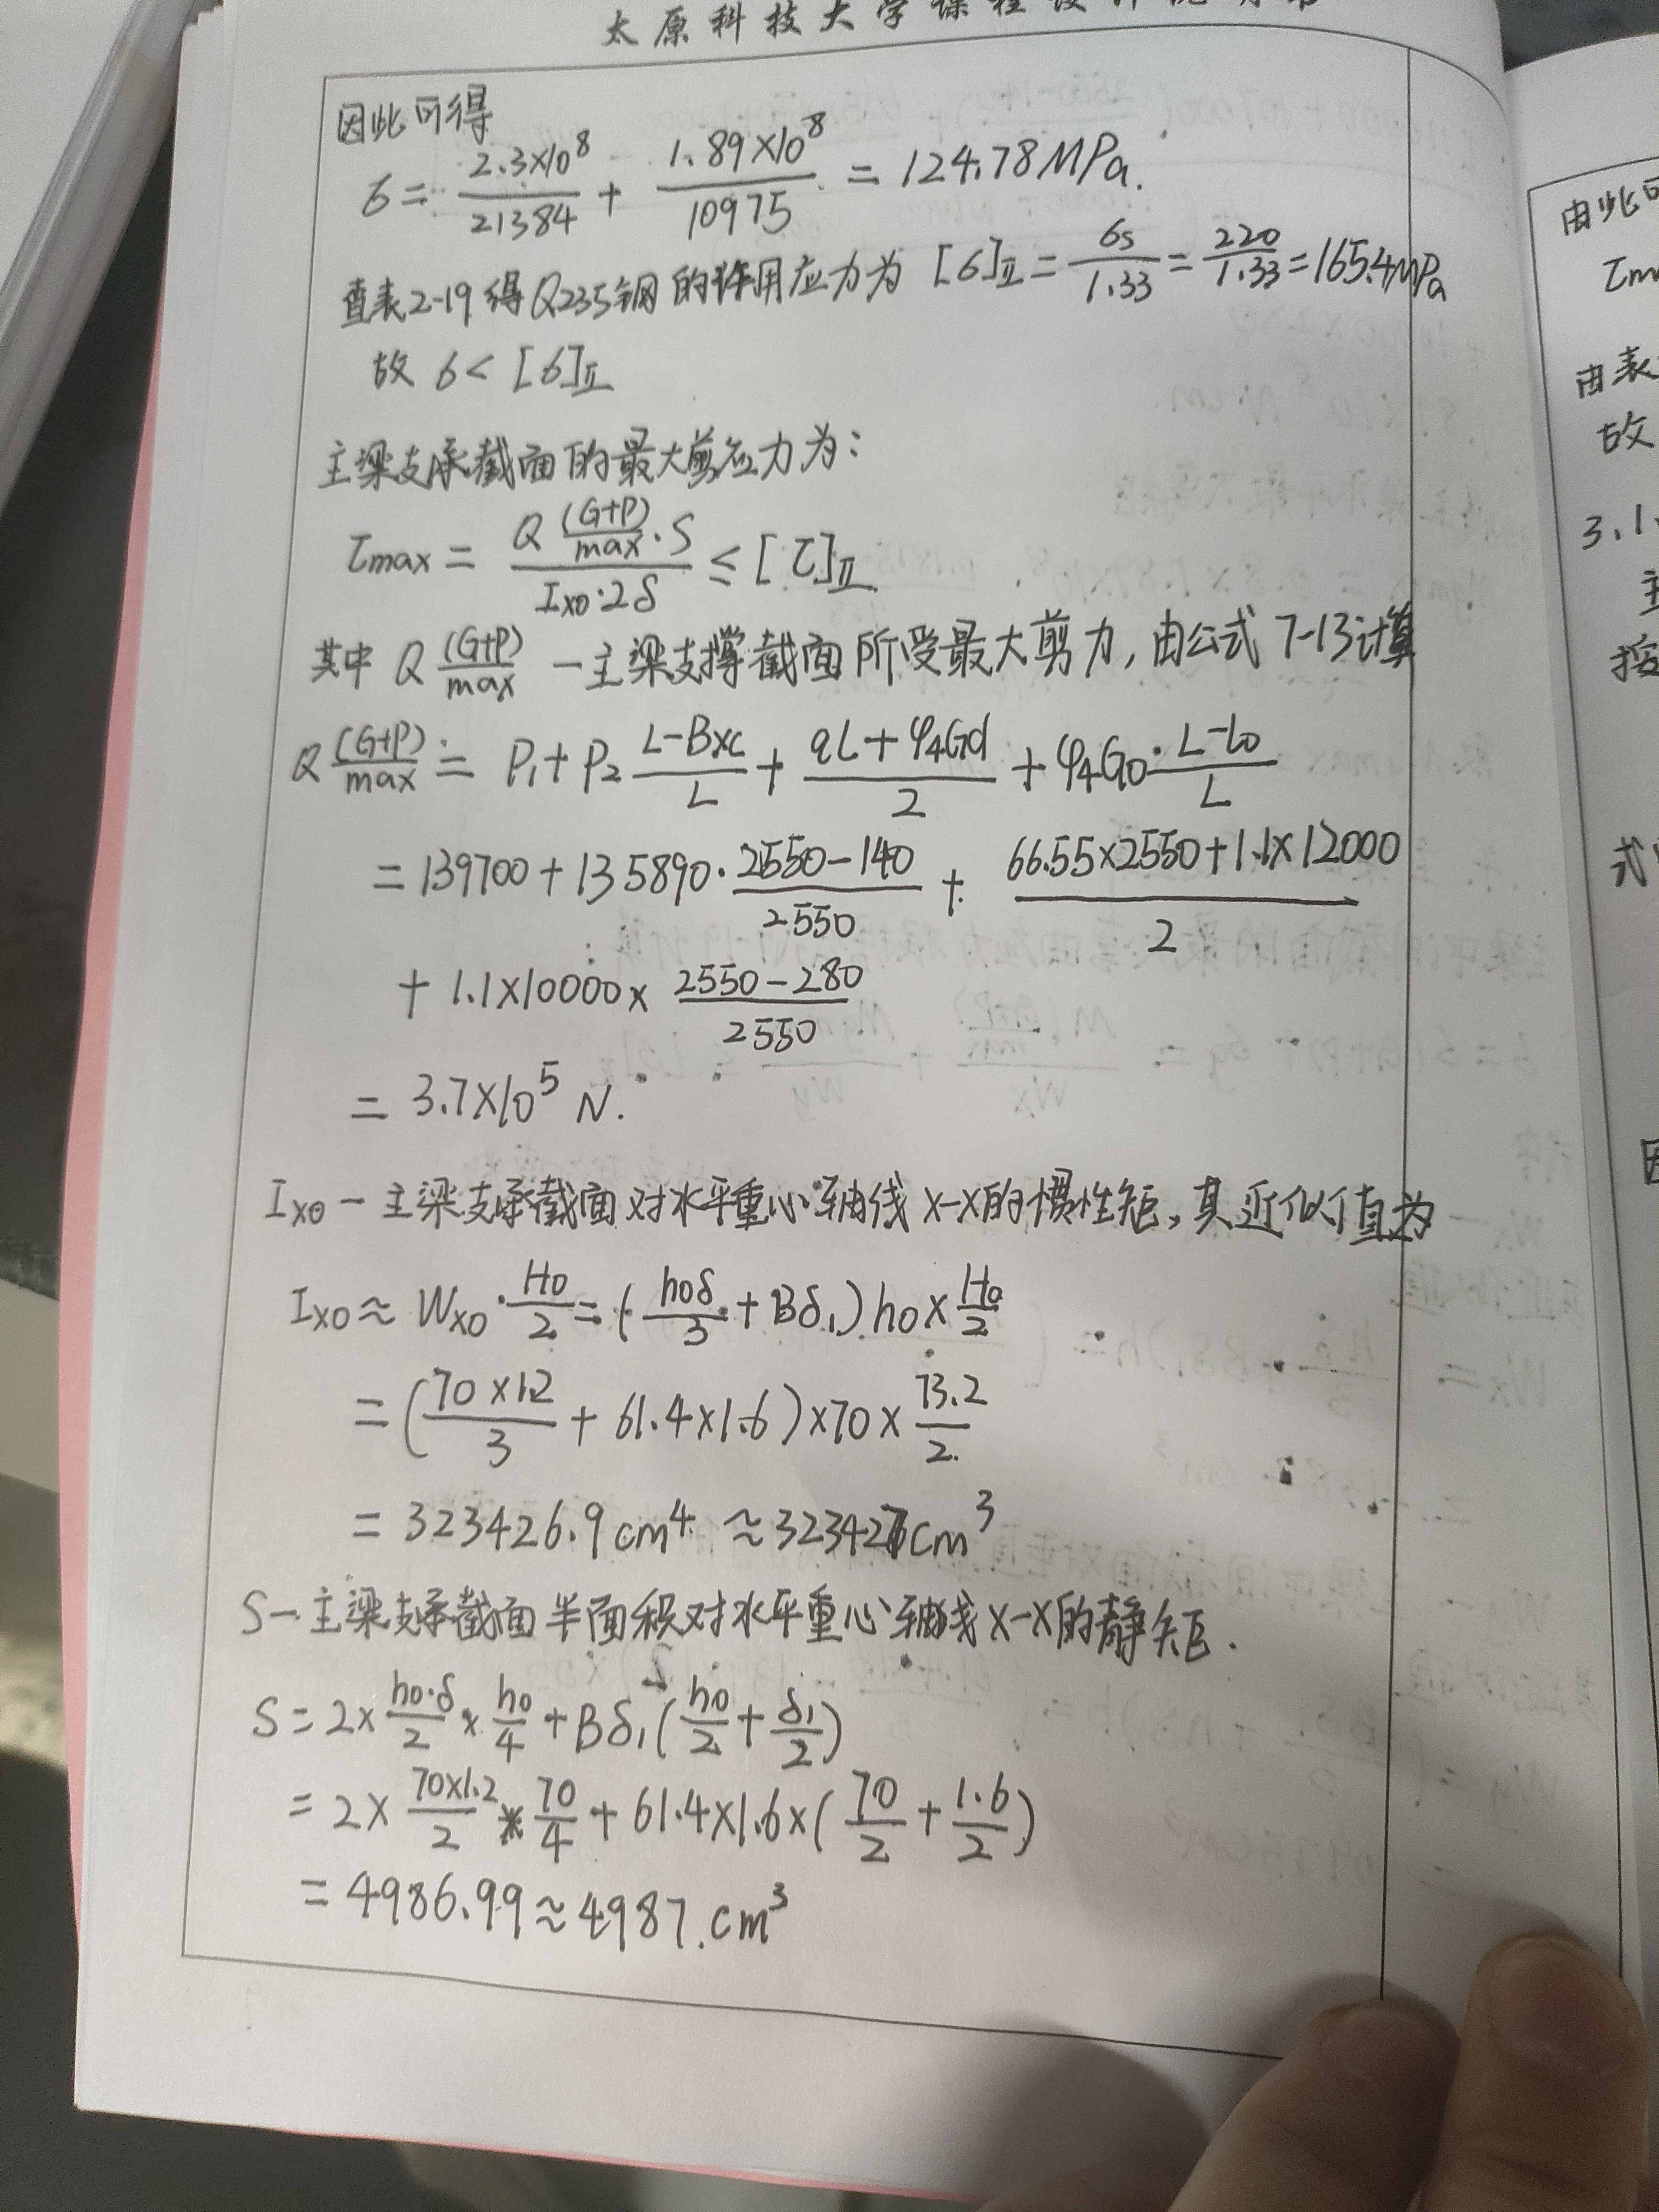 太原科技大学课程设计说明书
因此可得
σ = 2.3×10⁸/21384 + 1.89×10⁸/10975 = 124.78MPa.
查表2-19得Q235钢的许用应力为 [σ]Ⅱ = σs/1.33 = 220/1.33 = 165.4MPa
故 σ < [σ]Ⅱ
主梁支承截面的最大剪应力为:
τmax = Q (G+P)/max · S / Ix0·2δ ≤ [τ]Ⅱ
其中 Q (G+P)/max — 主梁支撑截面所受最大剪力, 由公式 7-13计算
Q (G+P)/max = P₁ + P₂ (L-Bxc)/L + (qL + φ₄Gd)/2 + φ₄G0 · (L-l0)/L
= 139700 + 135890 · (2550-140)/2550 + (66.55×2550+1.1×12000)/2
+ 1.1×10000 × (2550-280)/2550
= 3.7×10⁵ N.
Ix0 — 主梁支承截面对水平重心轴线 x-x的惯性矩, 其近似值为
Ix0 ≈ Wx0 · H0/2 = (h0δ/3 + Bδ₁) h0 × H0/2
= (70×1.2/3 + 61.4×1.6) ×70 × 73.2/2
= 323426.9 cm⁴ ≈ 323427cm³
S — 主梁支承截面半面积对水平重心轴线 x-x的静矩.
S = 2× h0·δ/2 × h0/4 + Bδ₁ (h0/2 + δ₁/2)
= 2 × 70×1.2/2 * 70/4 + 61.4×1.6×(70/2 + 1.6/2)
= 4986.99 ≈ 4987. cm³
由此可
τm
由表
故
3.1.
主
按
式
因